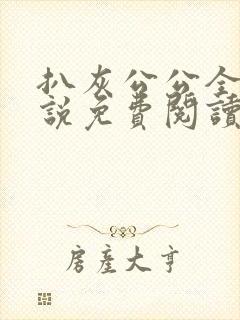 扒灰公公全
說免費閱讀
房產大亨